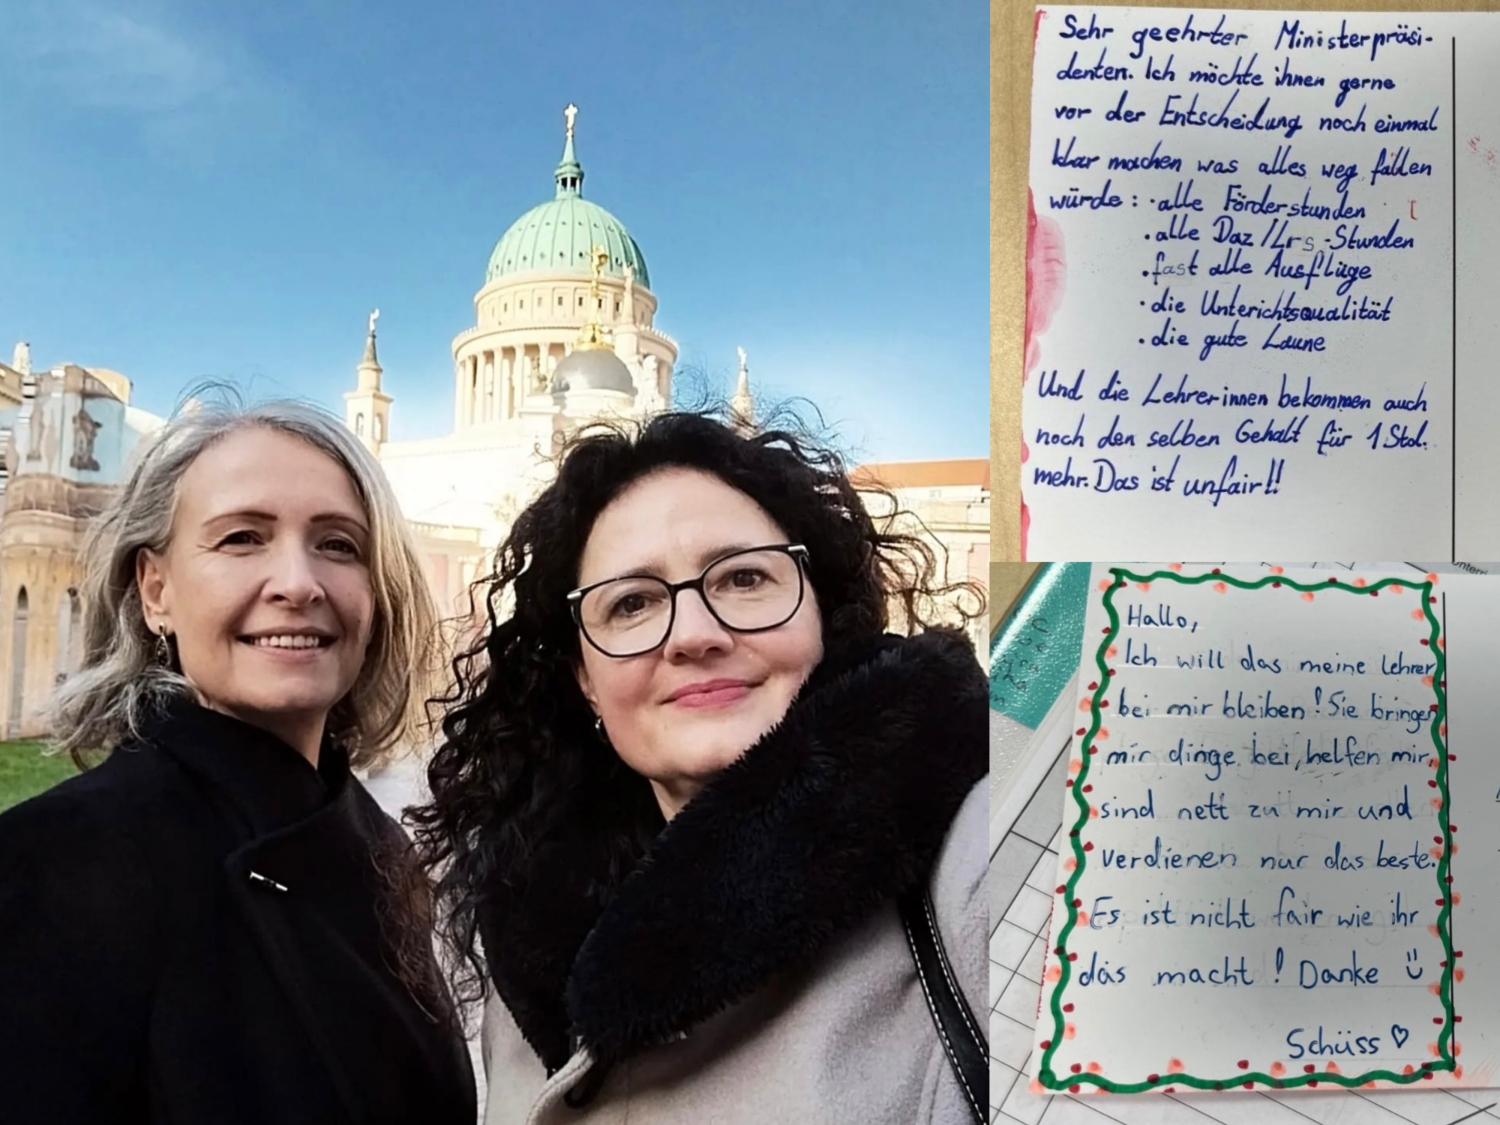 Sehr geehrter Ministerpräsi-
denten. Ich möchte ihnen gerne
vor der Entscheidung noch einmal
klar machen was alles weg fallen
würde: · alle Förderstunden
· alle Daz/Lrs-Stunden
· fast alle Ausflüge
· die Unterichtsqualität
· die gute Laune
Und die Lehrer·innen bekommen auch
noch den selben Gehalt für 1 Std.
mehr. Das ist unfair!!
Hallo,
Ich will das meine Lehrer
bei mir bleiben! Sie bringen
mir dinge bei, helfen mir,
sind nett zu mir und
verdienen nur das beste.
Es ist nicht fair wie ihr
das macht! Danke
Schüss ♡